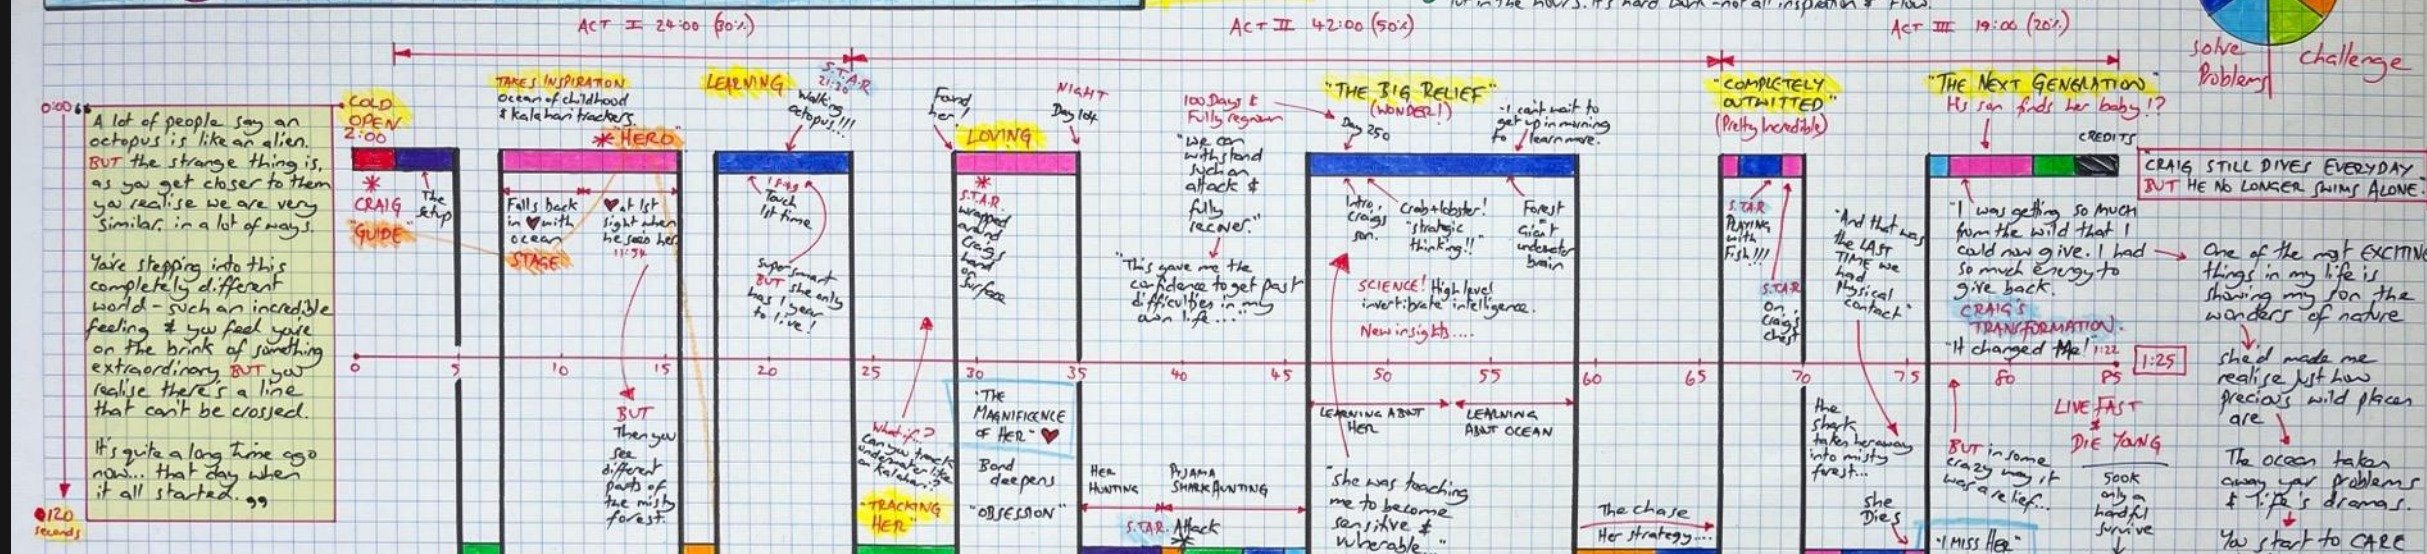 put in the hours. It's hard work - not all inspiration & flow.
ACT I 24:00 (30%)
ACT II 42:00 (50%)
ACT III 19:00 (20%)
solve
Problems
challenge
0:00
"A lot of people say an
octopus is like an alien.
BUT the strange thing is,
as you get closer to them
you realise we are very
similar in a lot of ways.
You're stepping into this
completely different
world - such an incredible
feeling & you feel you're
on the brink of something
extraordinary BUT you
realise there's a line
that can't be crossed.
It's quite a long time ago
now... that day when
it all started."
120
seconds
COLD
OPEN
2:00
* CRAIG
"GUIDE"
The
setup
TAKES INSPIRATION
ocean of childhood
& kalahari trackers.
* "HERO"
Falls back
in ♥ with
ocean
STAGE
♥ at 1st
sight when
he sees her
11:54
BUT
Then you
see
different
parts of
the misty
forest.
LEARNING
S.T.A.R
21:30
Walking
octopus!!!
Touch
1st time
Super smart
BUT she only
has 1 year
to live!
What if?
Can you track
underwater like
in Kalahari?
"TRACKING
HER"
Found
her!
LOVING
NIGHT
Day 104
*
S.T.A.R.
wrapped
around
Craigs
hand
on
surface
"THE
MAGNIFICENCE
OF HER" ♥
Bond
deepens
"OBSESSION"
HER
HUNTING
PYJAMA
SHARK HUNTING
S.T.A.R. Attack
100 Days &
Fully regrown
"we can
withstand
such an
attack &
fully
recover."
"This gave me the
confidence to get past
difficulties in my
own life..."
"THE BIG RELIEF"
(WONDER!)
Day 250
"I can't wait to
get up in morning
to learn more.
Intro.
Craigs
son.
Crab + lobster!
"strategic
thinking!!"
Forest
Giant
underwater
brain
SCIENCE! High level
invertibrate intelligence.
New insights....
LEARNING ABOUT
HER
LEARNING
ABOUT OCEAN
"she was teaching
me to become
sensitive &
vulnerable..."
The chase
Her strategy....
"COMPLETELY
OUTWITTED"
(Pretty Incredible)
S.T.A.R
PLAYING
with
Fish!!!
S.T.A.R
On
Craigs
Chest
"And that was
the LAST
TIME we
had
physical
contact"
the
shark
takes her away
into misty
forest...
she
Dies
"THE NEXT GENERATION"
His son finds her baby!?
CREDITS
"I was getting so much
from the wild that I
could now give. I had
so much energy to
give back.
CRAIG'S
TRANSFORMATION.
"It changed Me!" 1:22
1:25
BUT in some
crazy way it
was a relief...
"I MISS HER"
LIVE FAST
&
DIE YOUNG
500K
only a
handful
survive
"CRAIG STILL DIVES EVERYDAY
BUT HE NO LONGER SWIMS ALONE.
One of the most EXCITING
things in my life is
showing my son the
wonders of nature
She'd made me
realise just how
precious wild places
are
The ocean takes
away your problems
& life's dramas.
You start to CARE
0 5 10 15 20 25 30 35 40 45 50 55 60 65 70 75 80 85